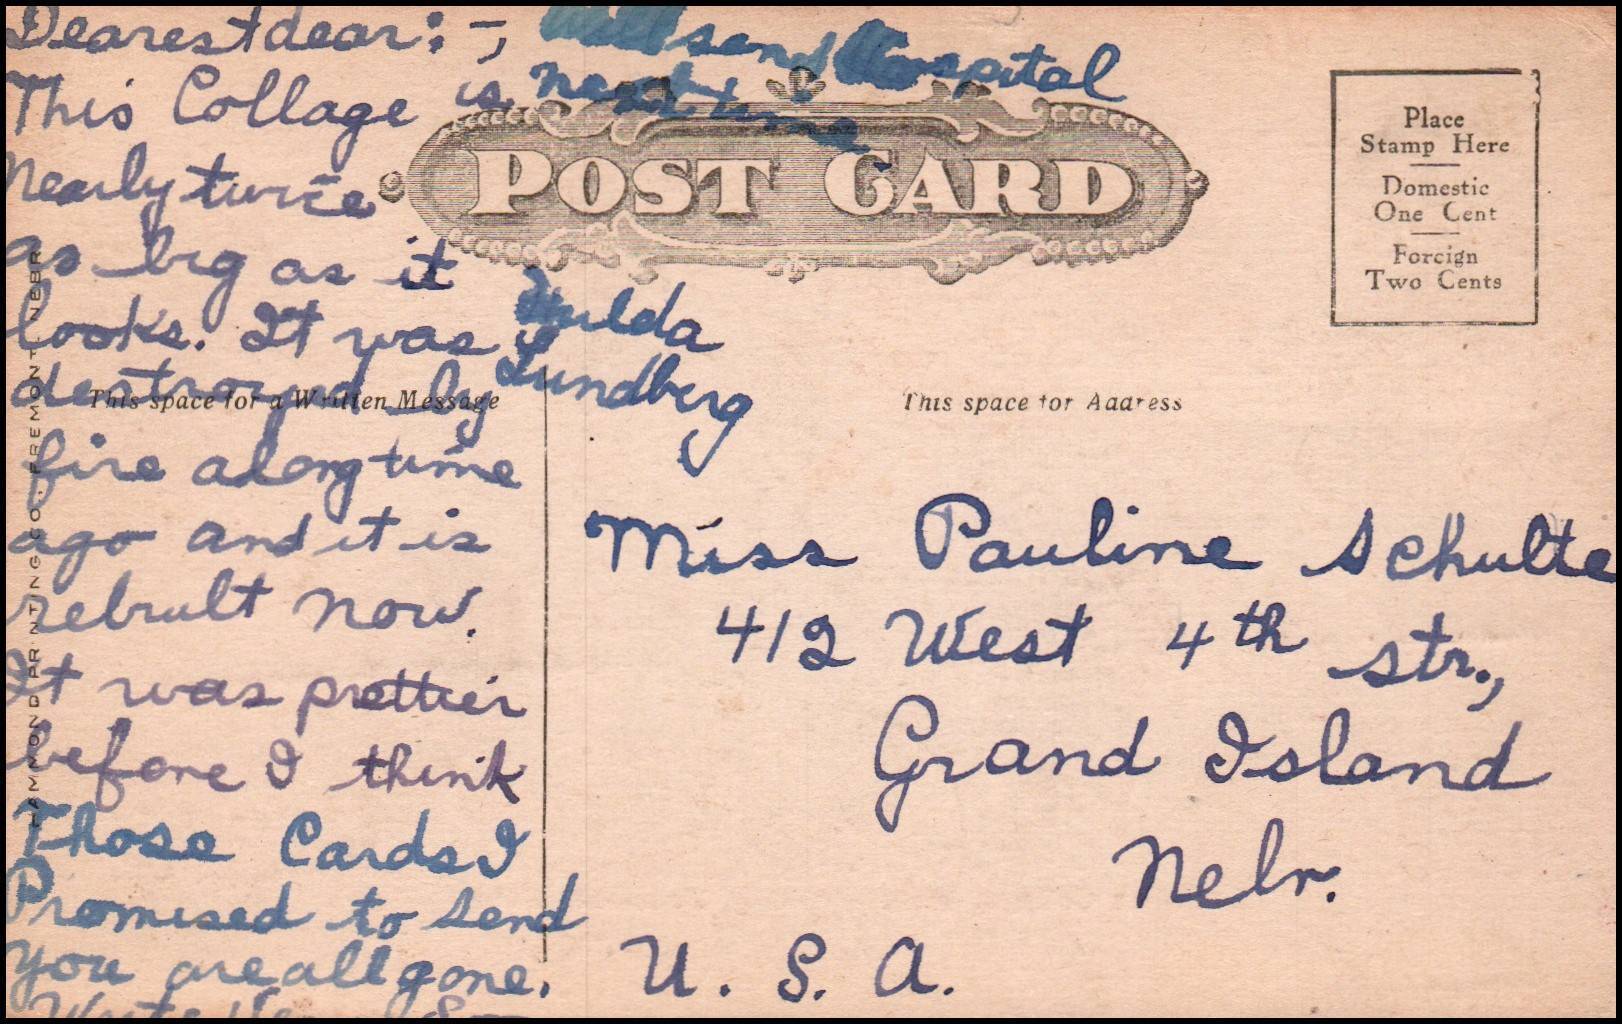 Dearest dear: -,
This Collage is
nearly twice
as big as it
looks. It was
destroyed by
fire a long time
ago and it is
rebuilt now.
It was prettier
before I think
Those Cards I
Promised to send
you are all gone.
Write
Will send Hospital
next time
Hulda
Lundberg
POST CARD
Place
Stamp Here
Domestic
One Cent
Foreign
Two Cents
This space for a Written Message
This space for Address
HAMMOND PRINTING CO. FREMONT, NEBR.
Miss Pauline Schulte
412 West 4th str.,
Grand Island
Nebr.
U. S. A.